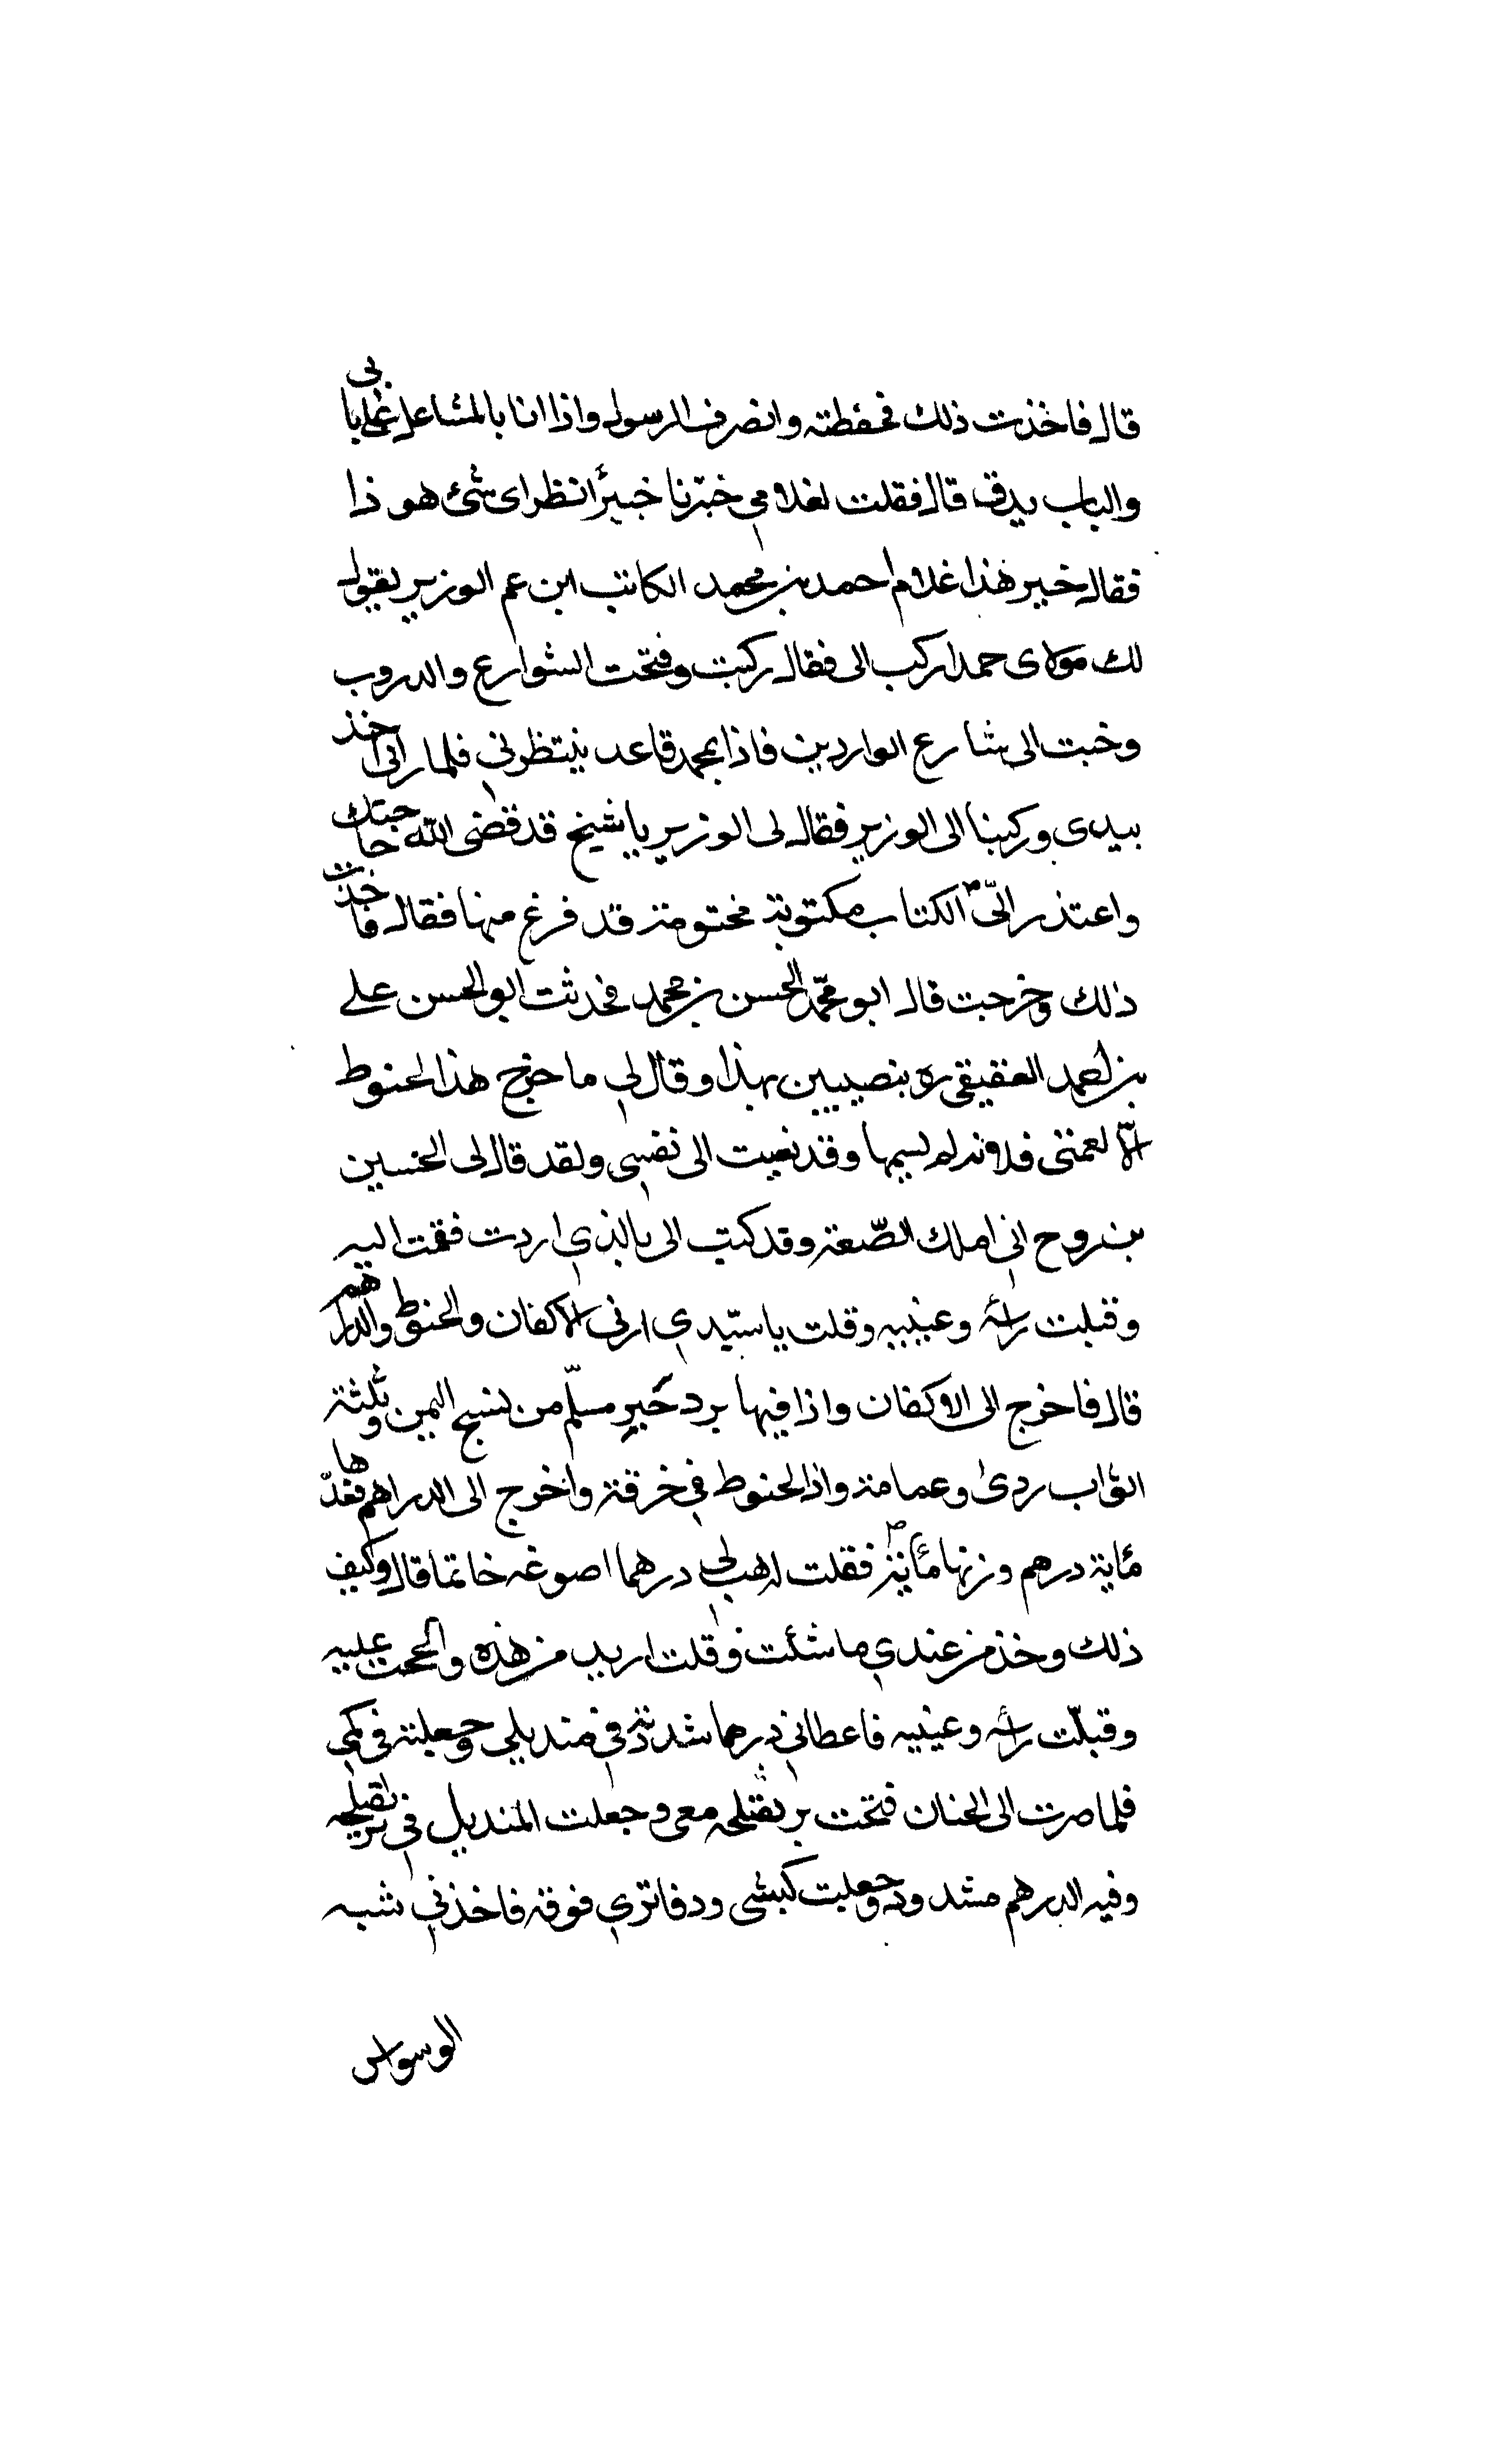 قال فاخذت ذلك فحفظته وانصرف الرسول واذا انا بالمشاعل على بابى
والباب يدق قال فقلت لغلامي خبّرنا خبيرًا انظر اى شئ هو ذا
فقال خير هذا غلام احمد بن محمد الكاتب ابن عم الوزير يقول
لك مولاى حمد اركب الى فقال ركبت وفتحت الشوارع والدروب
وخبت الى شارع الواردين فاذا بمحمد قاعد ينتظرني فلما رآنى اخذ
بيدى وركبنا الى الوزير فقال لى الوزير يا شيخ قد قضى الله حاجتك
واعتذر الىّ الكتاب مكتوبة مختومة قد فرغ منها فقال فاخذت
ذلك وخرجت قال ابو محمّد الحسن بن محمد فحدثت ابو الحسن على
بن احمد العقيقى ره بنصيبين بهذا وقال لي ما خرج هذا الحنوط
الّا لعمتى فلانة لم يسمها وقد نعيت الى نفسي ولقد قال لى الحسين
بن روح اني املك الصّعة وقد كتب الى بالذي اردت فقمت اليه
وقبلت راسه وعينيه وقلت يا سيّدي ارنى الاكفان والحنوط والدراهم
قال فاخرج الى الاكفان واذا فيها برد حَبِر مسلّم من نسج اليمن وثلثة
اثواب ردى وعمامة واذا الحنوط في خرقة واخرج الى الدراهم فعدّها
مأية درهم وزنها مأية فقلت له هب لي درهما اصوغه خاتما قال وكيف
ذلك وخذ من عندي ما شئت فقلت اريد من هذه والححت عليه
وقبلّت راسه وعينيه فاعطاني درهما شددته في منديلي وجعلته فى كمى
فلما صرت الى الخان فتحت برنقيلجه معى وجعلت المنديل في برنقيلجه
وفيه الدرهم مشدود وجعلت كتبى ودفاتري فوقه فاخذني شبه
الوسواس